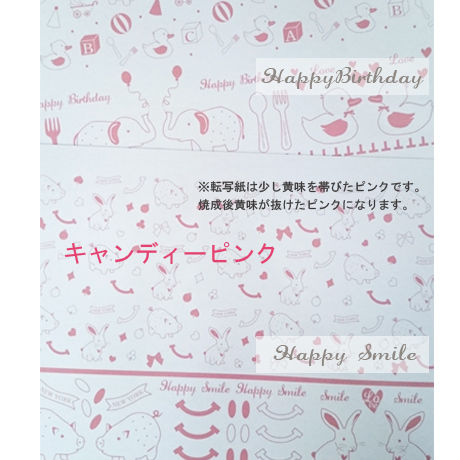 B C A
Love
HappyBirthday
Happy Birthday
Love
※転写紙は少し黄味を帯びたピンクです。
焼成後黄味が抜けたピンクになります。
キャンディーピンク
Happy Smile
NEW YORK
NEW YORK
Happy Smile Happy Smile
Smile
Smile